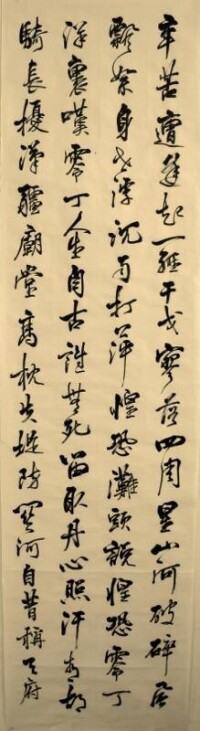 辛苦遭逢起一經干戈寥落四周星山河破碎風
飄絮身世浮沉雨打萍惶恐灘頭說惶恐零丁
洋裏嘆零丁人生自古誰無死留取丹心照汗青胡
騎長擾漢疆廟堂高枕失堤防關河自昔稱天府